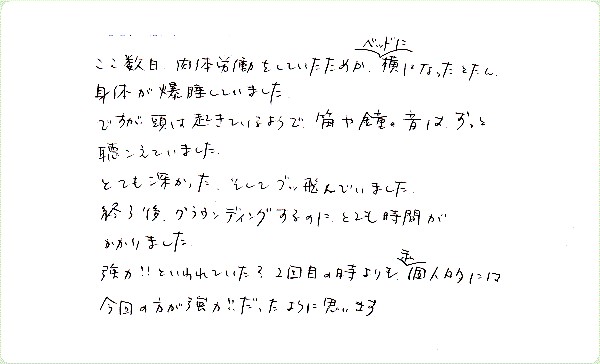 ベッドに
ここ数日、肉体労働をしていたためか、横になったとたん、
身体が爆睡していました。
ですが頭は起きているようで、笛や鐘の音はずっと
聴こえていました。
とても深かった、そしてブッ飛んでいました。
終了後、グラウンディングするのに、とても時間が
かかりました。
強力!!といわれていた?2回目の時よりも、個人的には
今回の方が強力!!だったように思います